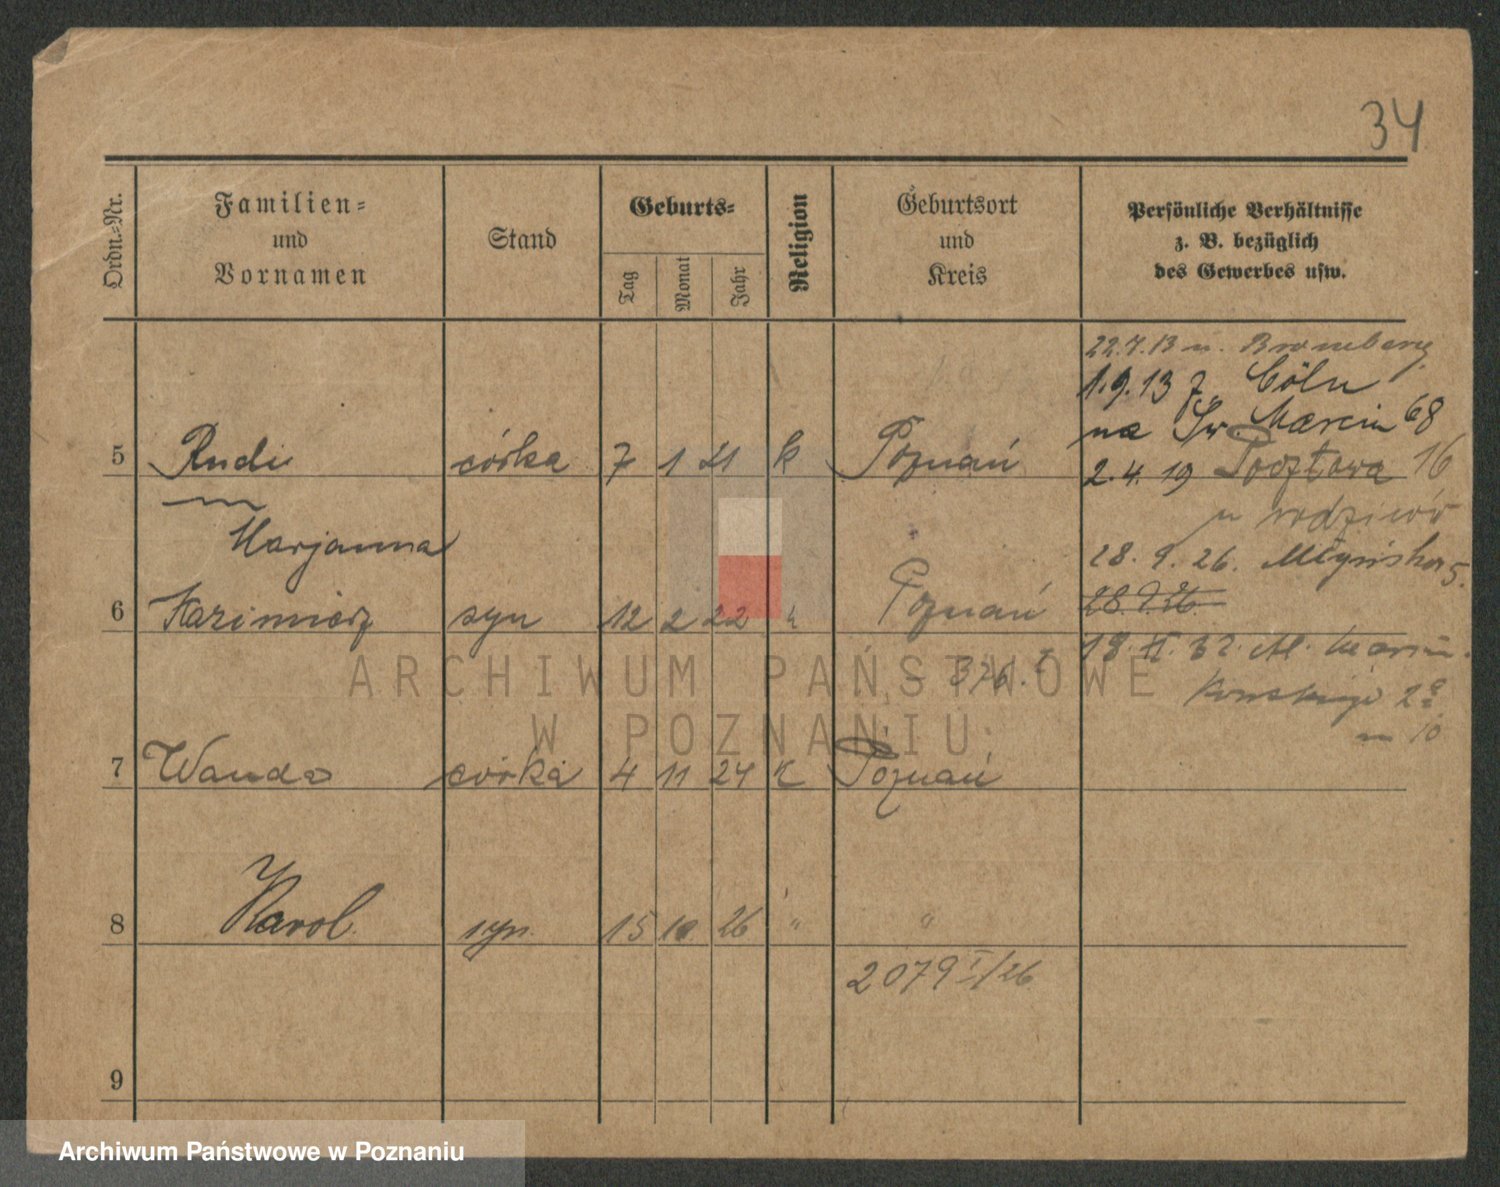 34
Ordn.-Nr.
Familien-
und
Vornamen
Stand
Geburts-
Tag
Monat
Jahr
Religion
Geburtsort
und
Kreis
Persönliche Verhältnisse
z. B. bezüglich
des Gewerbes usw.
22.7.13 n. Bromberg
1.9.13 z. Cöln
na Św Marcin 68
5 Rudi córka 7 1 21 k Poznań
2.4.19 Pocztowa 16
u rodziców
Marjanna
28. 9. 26. Młyńska 5.
6 Kazimierz syn 12 2 22 k Poznań
28.9.26
18. II. 32. M. Marcin-
376.
kowskiego 2
m 10
7 Wanda córka 4 11 24 K Poznań
8 Karol syn. 15 10 26 " "
2079 I/26
9
ARCHIWUM PAŃSTWOWE
W POZNANIU
Archiwum Państwowe w Poznaniu